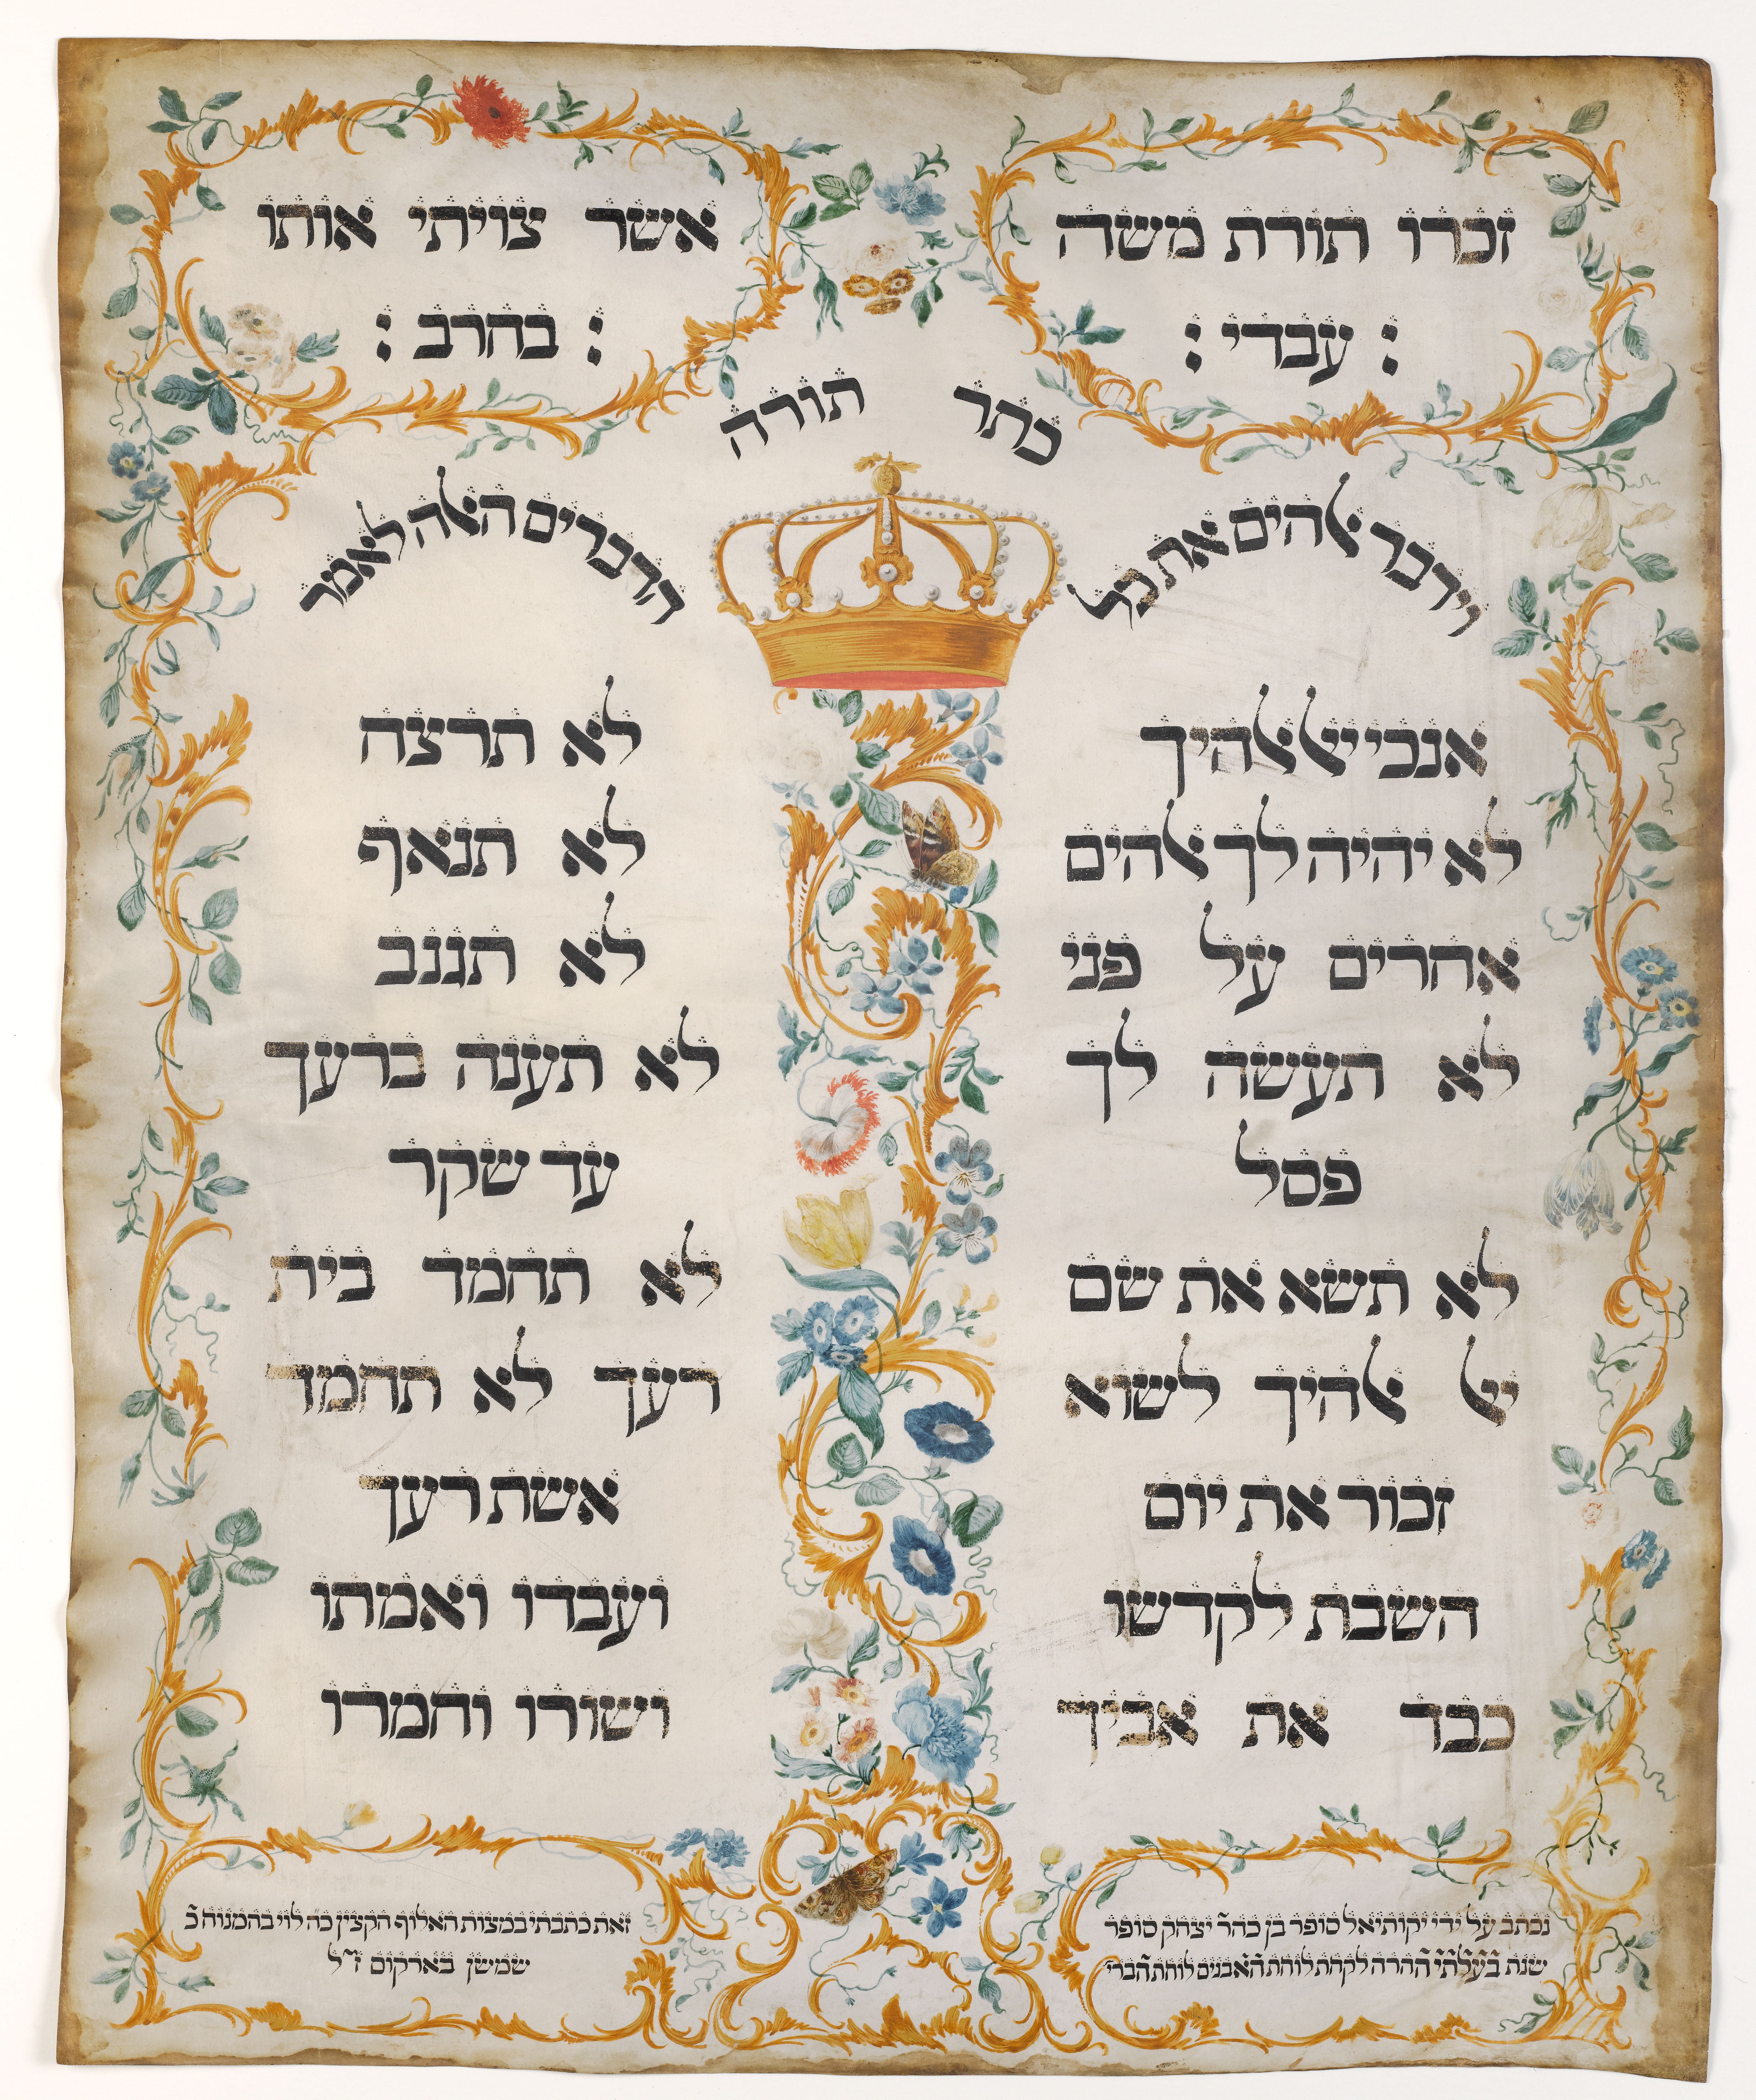 זכרו תורת משה
: עבדי :
אשר צויתי אותו
: בחרב :
כתר תורה
וידבר אלהים את כל
הדברים האלה לאמר
אנכי יי אלהיך
לא יהיה לך אלהים
אחרים על פני
לא תעשה לך
פסל
לא תשא את שם
יי אלהיך לשוא
זכור את יום
השבת לקדשו
כבד את אביך
לא תרצח
לא תנאף
לא תגנב
לא תענה ברעך
עד שקר
לא תחמד בית
רעך לא תחמד
אשת רעך
ועבדו ואמתו
ושורו וחמרו
נכתב על ידי יקותיאל סופר בן כהר יצחק סופר
שנת בעלתי ההרה לקחת לוחת האבנים לוחת הברי
זאת כתבתי במצות האלוף הקצין כה לוי בהמנוח כ
שמשן בארקום ז״ל